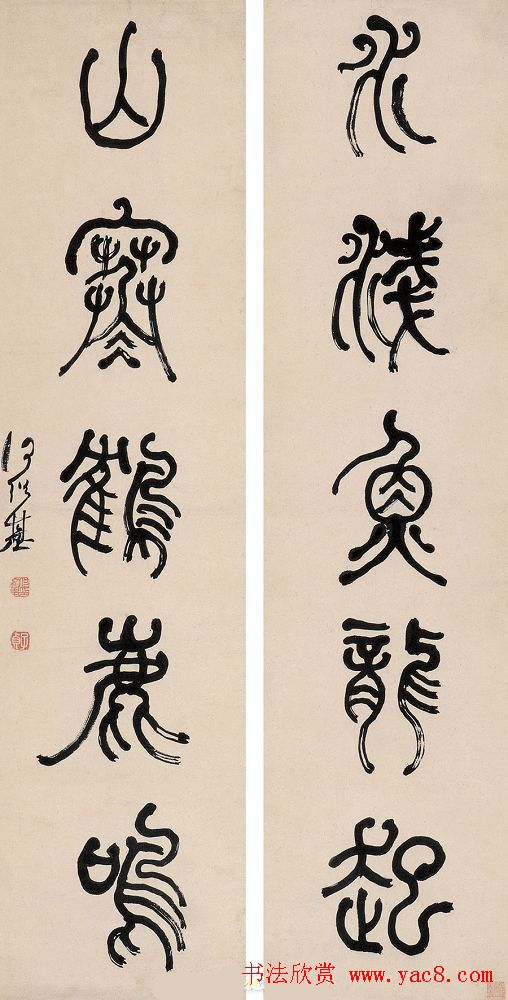 水淺魚龍起
山寒鶴鹿鳴
何紹基
书法欣赏 www.yac8.com